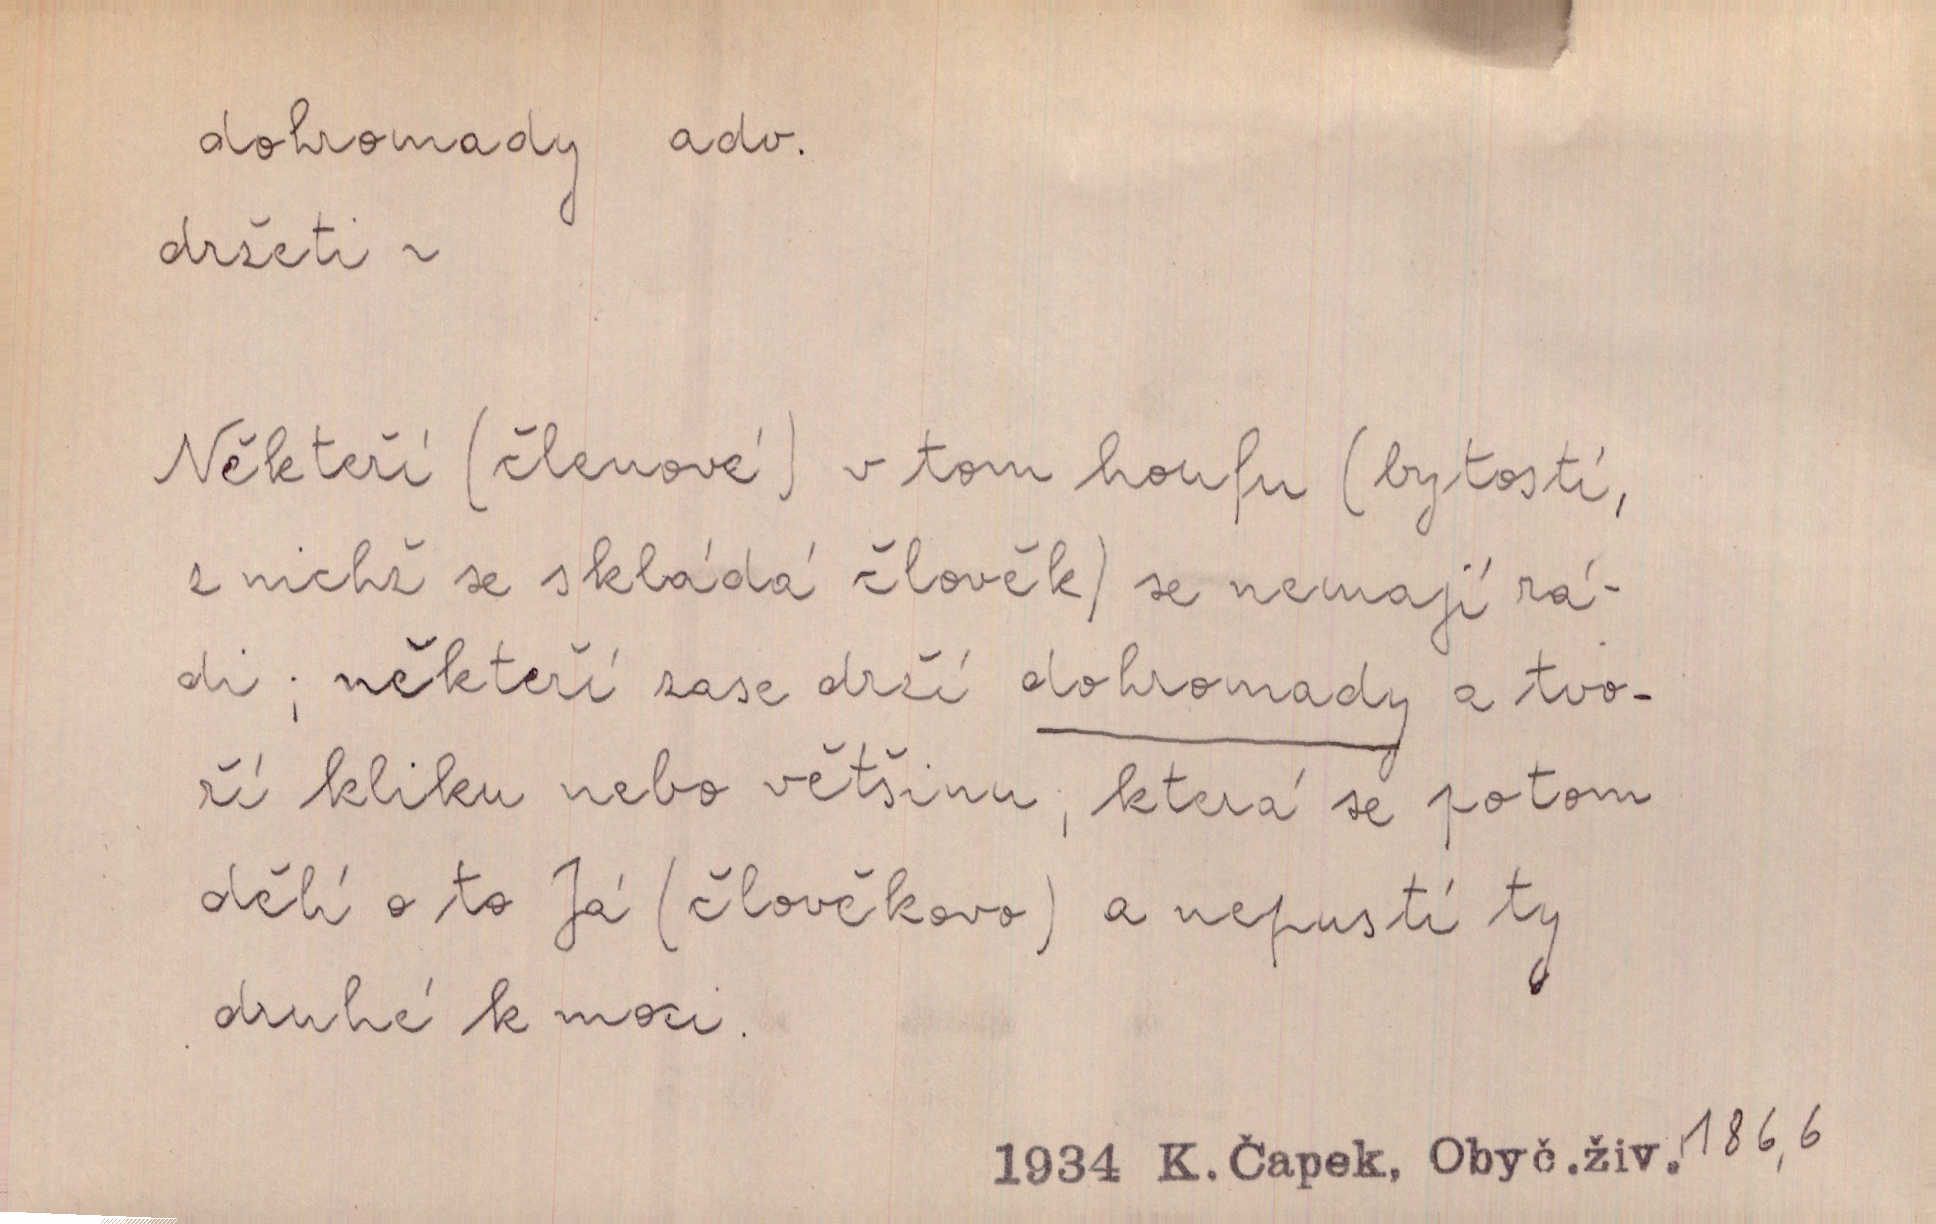 dohromady adv.
držeti ~
Někteří (členové) v tom houfu (bytostí,
z nichž se skládá člověk) se nemají rá-
di; někteří zase drží dohromady a tvo-
ří kliku nebo většinu, která se potom
dělí o to Já (člověkovo) a nepustí ty
druhé k moci.
1934 K. Čapek, Obyč.živ. 186,6